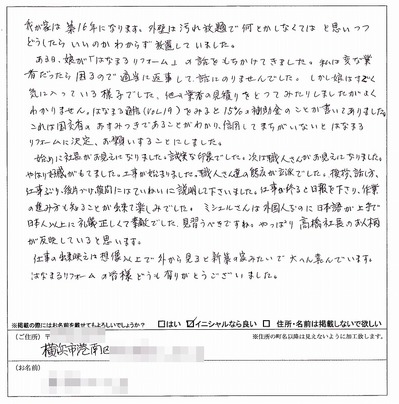 我が家は築16年になります。外壁は汚れ放題で何とかしなくてはと思いつつ
どうしたらいいのかわからず放置していました。
ある日、娘が「はなまるリフォーム」の話をもちかけてきました。私は変な業
者だったら困るので適当に返事して、話にのりませんでした。しかし娘はすごく
気に入っている様子でした。他の業者の見積りをとってみたりしましたがよく
わかりません。はなまる通信(Vol.19)をみると15%の補助金のことが書いてありました。
これは国交省のおすみつきであることがわかり、信用してまちがいないとはなまる
リフォームに決定、お願いすることにしました。
始めに社長がお見えになりました。誠実な印象でした。次は職人さんがお見えになりました。
やはり好感がもてました。工事が始まりました。職人さん達の態度が立派でした。挨拶、話し方、
仕事ぶり、後片づけ、質問にはていねいに説明して下さいました。仕事が終ると日報を下さり、作業
の進み方も知ることが出来て楽しみでした。ミシェルさんは外国人なのに日本語が上手で
日本人以上に礼儀正しくて素敵でした。見習うべきですね。やっぱり高橋社長のお人柄
が反映していると思います。
仕事の出来映えは想像以上で外から見ると新築の家みたいで大へん喜んでいます。
はなまるリフォームの皆様どうも有りがとうございました。
※掲載の際にはお名前を載せてもよろしいでしょうか? □はい ☑イニシャルなら良い □住所・名前は掲載しないで欲しい
(ご住所) 〒 ※住所の町名以降は見えないように加工致します。
横浜市港南区
(お名前)